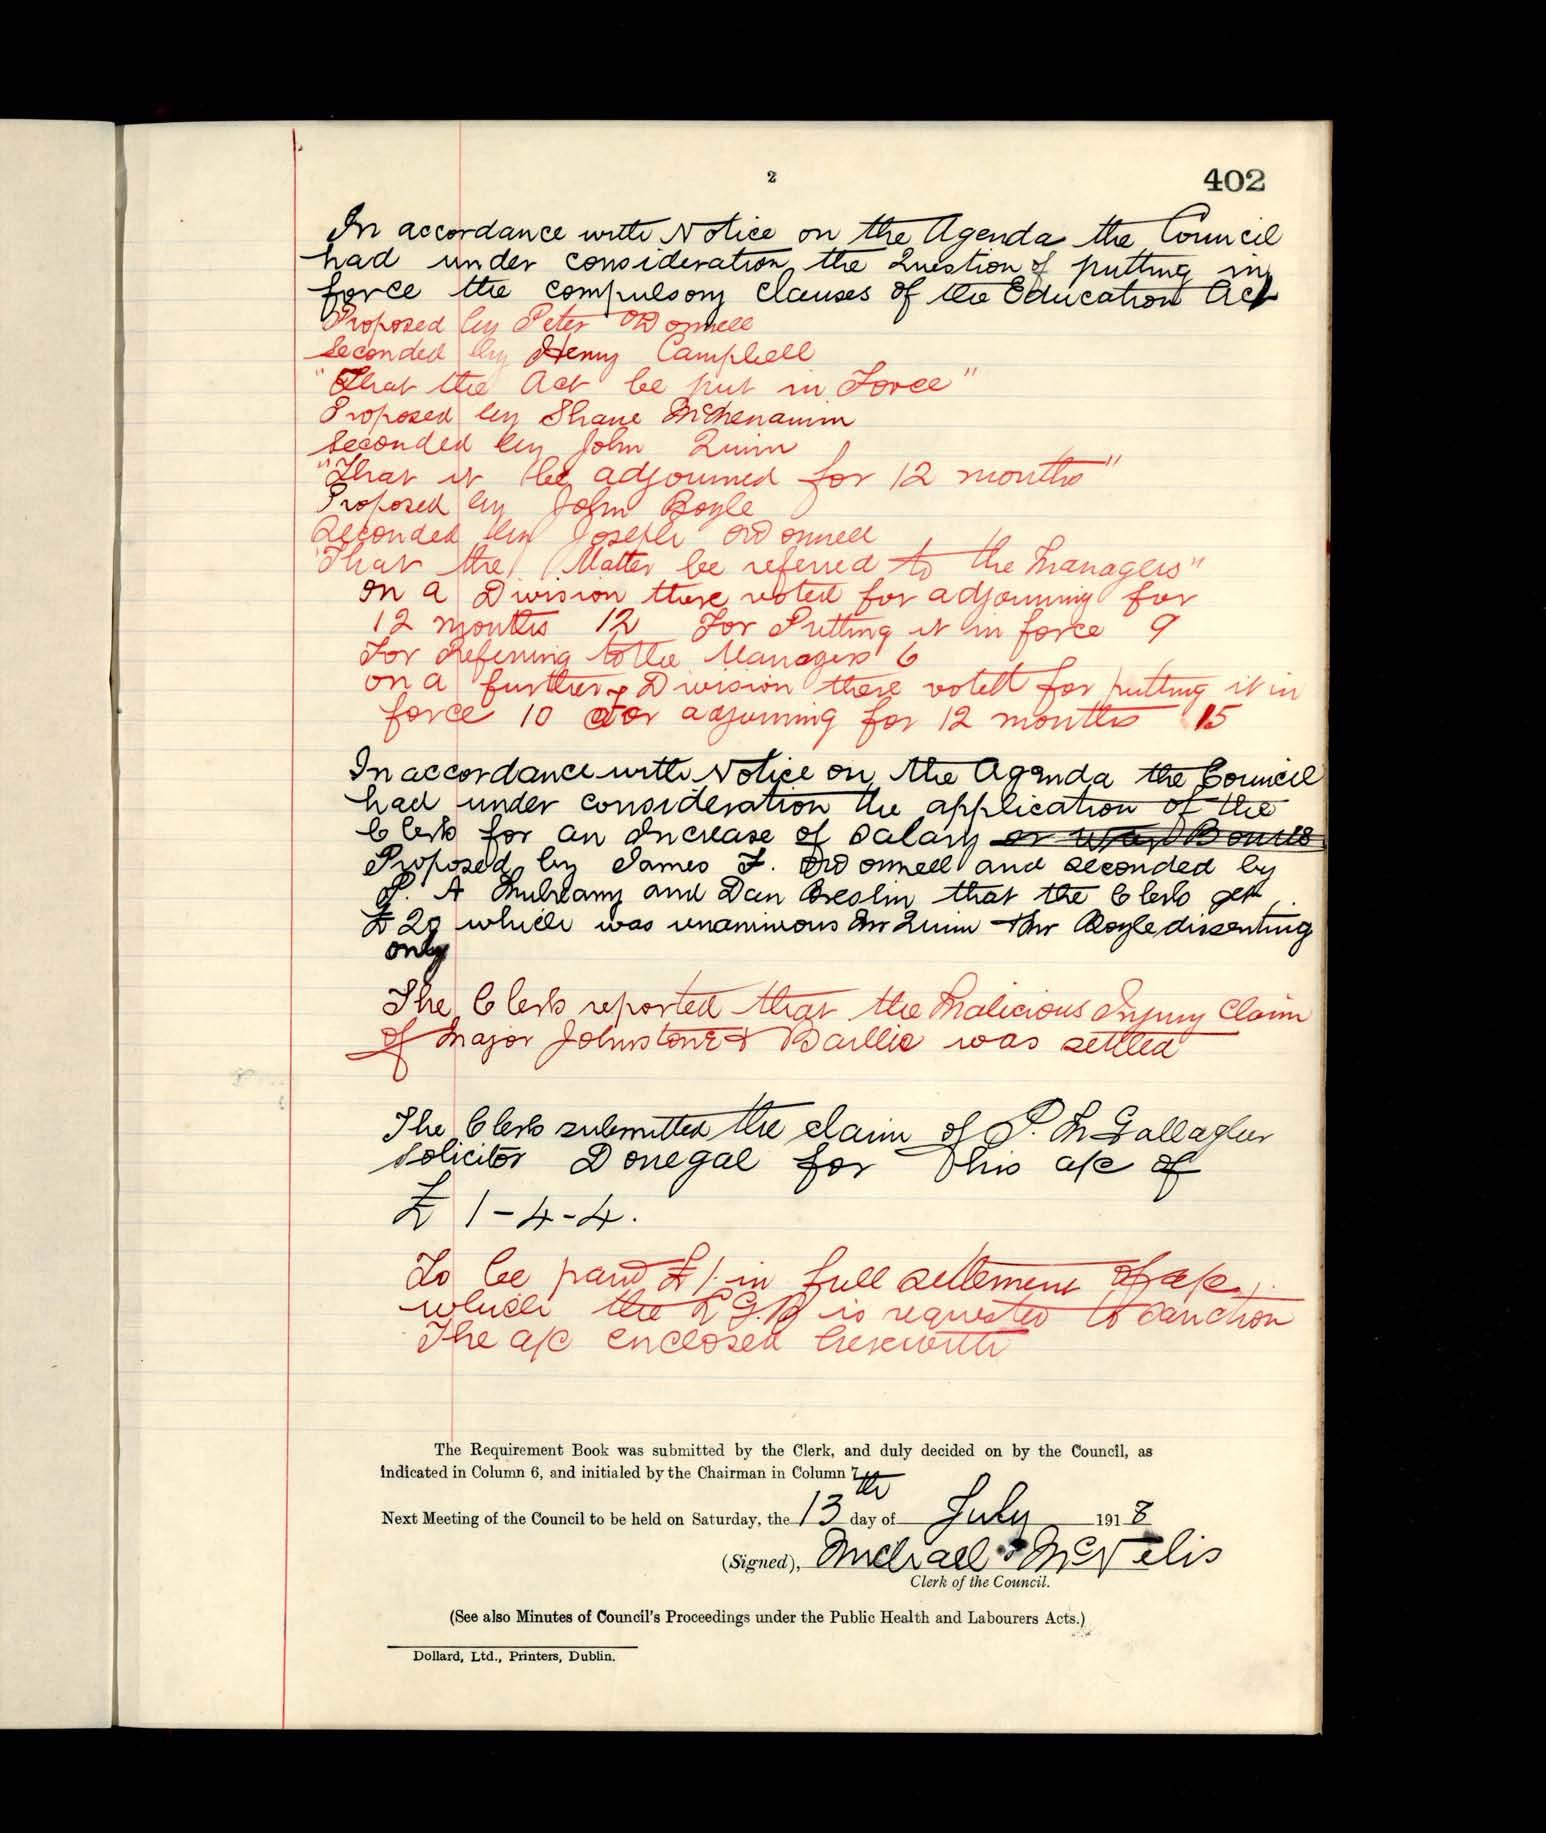 2
402
In accordance with Notice on the Agenda the Council
had under consideration the Question of putting in
force the compulsory clauses of the Education Act
Proposed by Peter O'Donnell
Seconded by Henry Campbell
"That the Act be put in Force"
Proposed by Shane McMenamin
Seconded by John Quinn
"That it be adjourned for 12 months"
Proposed by John Boyle
Seconded by Joseph O'Donnell
"That the Matter be referred to the Managers"
On a Division there voted for adjourning for
12 months 12 For Putting it in force 9
For Referring to the Managers 6
on a further Division there voted for putting it in
force 10 for adjourning for 12 months 15
In accordance with Notice on the Agenda the Council
had under consideration the application of the
Clerk for an Increase of Salary or War Bonus
Proposed by James F. O'Donnell and seconded by
P. A Mulreany and Dan Breslin that the Clerk get
£20 which was unanimous Mr Quinn + Mr Boyle dissenting
only
The Clerk reported that the Malicious Injury Claim
of Major Johnstone & Baillie was settled
The Clerk submitted the claim of P. M Gallagher
Solicitor Donegal for this a/c of
£ 1-4-4.
To be paid £1 in full settlement of a/c
which the L G.B is requested to sanction
The a/c enclosed herewith
The Requirement Book was submitted by the Clerk, and duly decided on by the Council, as
indicated in Column 6, and initialed by the Chairman in Column 7.
Next Meeting of the Council to be held on Saturday, the 13th day of July 1918
(Signed), Michael McNelis
Clerk of the Council.
(See also Minutes of Council's Proceedings under the Public Health and Labourers Acts.)
Dollard, Ltd., Printers, Dublin.